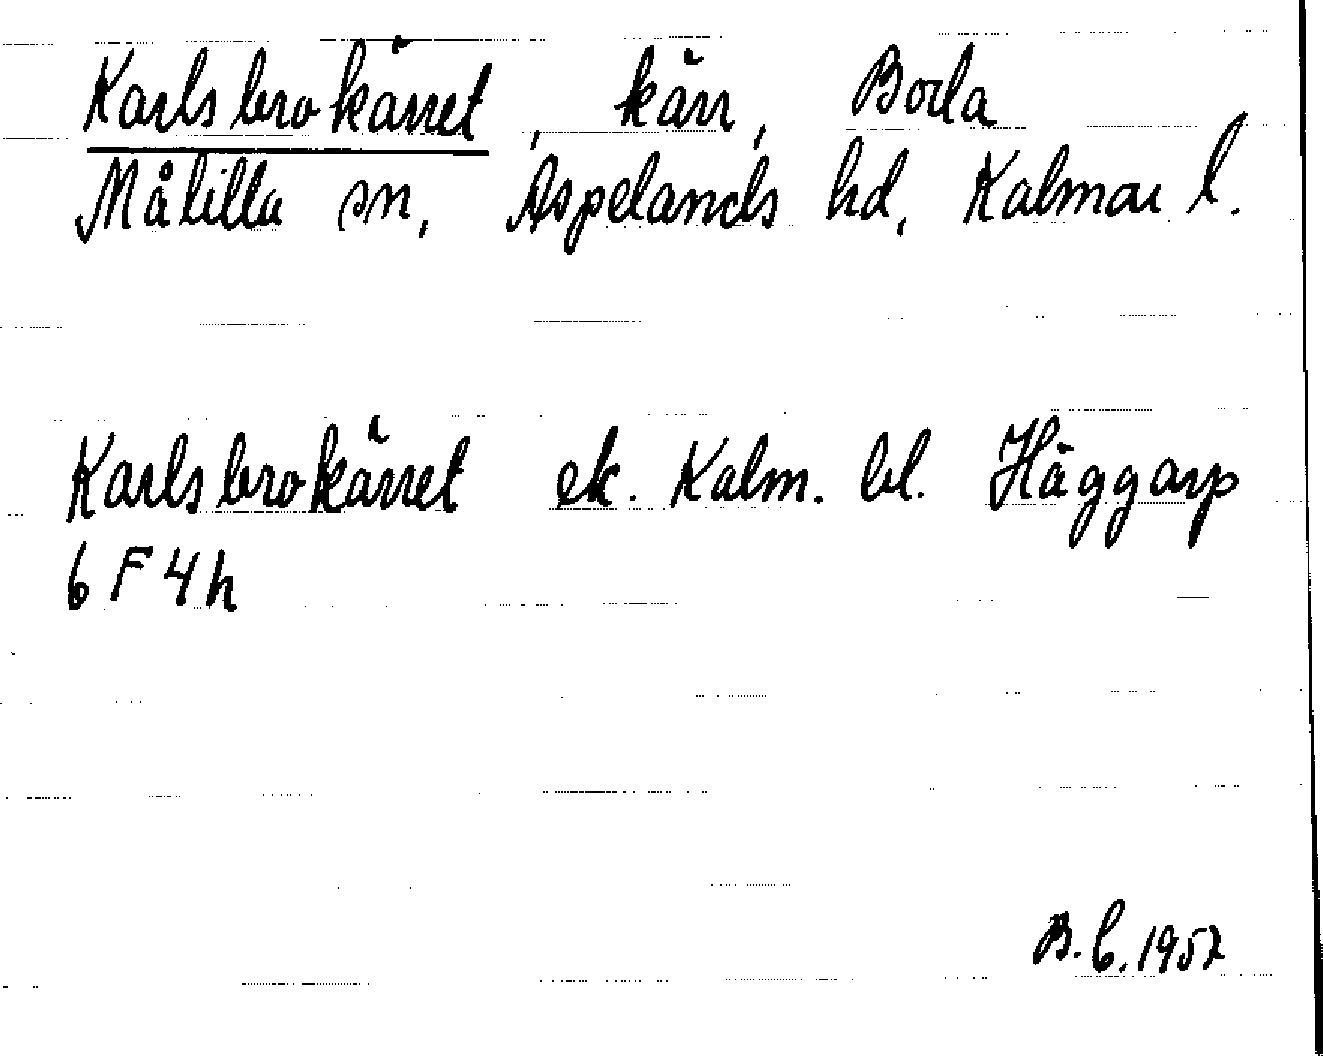 Karlsbrokärret, kärr, Borla
Målilla sn, Aspelands hd, Kalmar l.
Karlsbrokärret ek. Kalm. bl. Häggarp
6 F 4 h
B.C. 1952